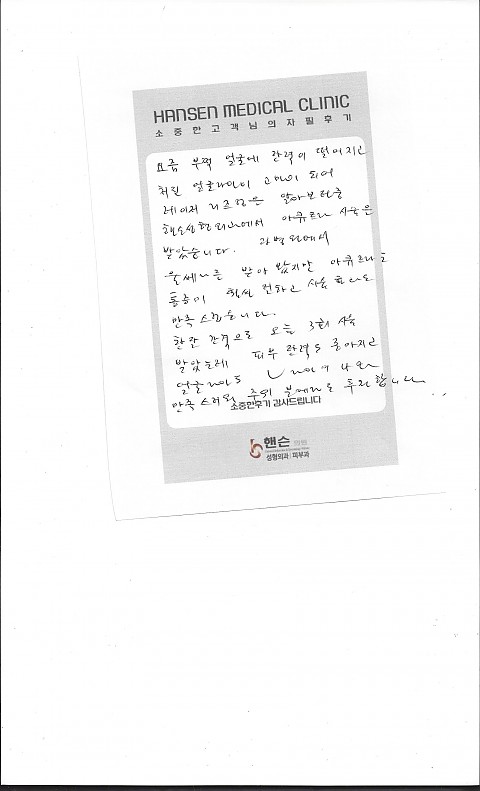 HANSEN MEDICAL CLINIC
소중한고객님의자필후기
요즘 부쩍 얼굴에 탄력이 떨어지고
처진 얼굴라인이 고민이 되어
레이저 리프팅을 알아보던중
핸슨성형외과에서 아큐르라 시술을
받았습니다. 과병원에서
울쎄라를 받아 봤지만 아큐르라는
통증이 훨씬 편하고 시술 효과도
만족스럽습니다.
한달 간격으로 오늘 3회 시술
받았는데 피부 탄력도 좋아지고
얼굴라인도 V라인이 나와
만족스러워 주위 분에게도 추천합니다
소중한후기 감사드립니다
핸슨 의원
성형외과 | 피부과